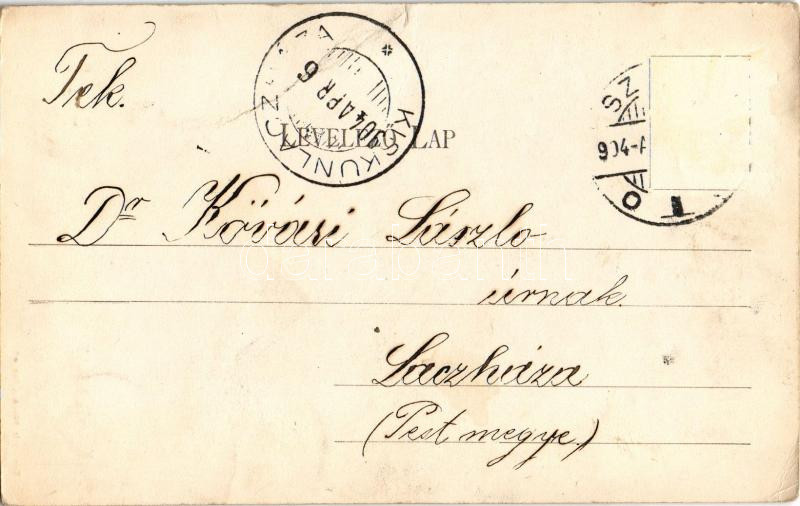 Tek.
KISKUNLACZHÁZA
904 APR 6
LEVELEZŐ LAP
SZ
904-A
Dr Kővári László
úrnak.
Laczháza
(Pest megye.)
darabanth